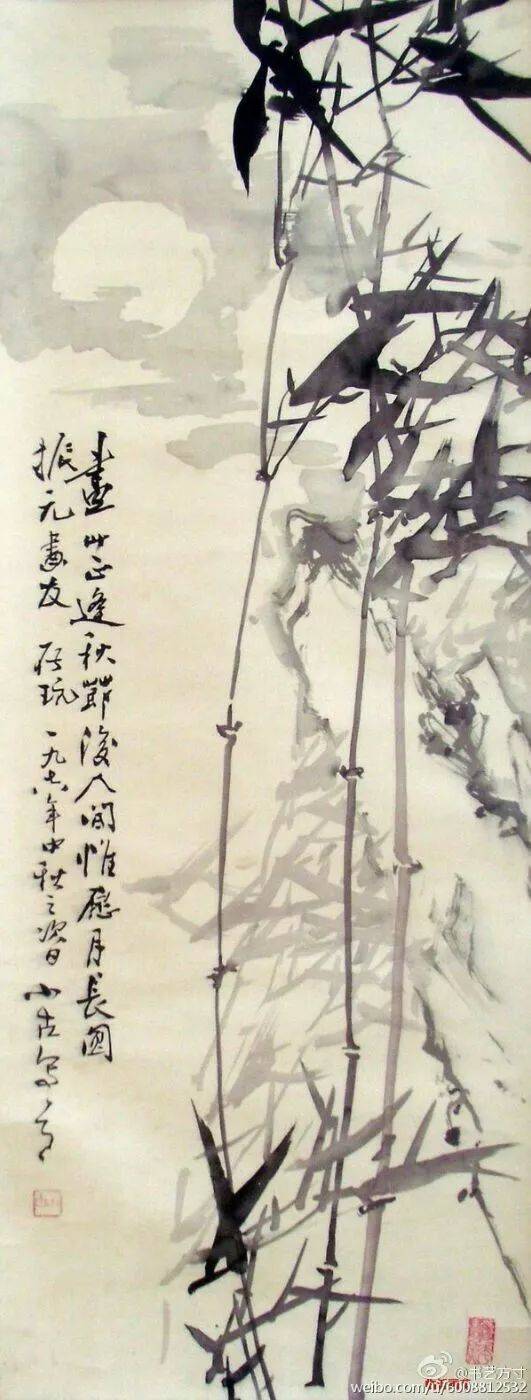 畫此正逢秋節後人間惟愿月長圓
振元畫友存玩一九七六年中秋之次日小古寫之
@书艺方寸
weibo.com/u/6008812532